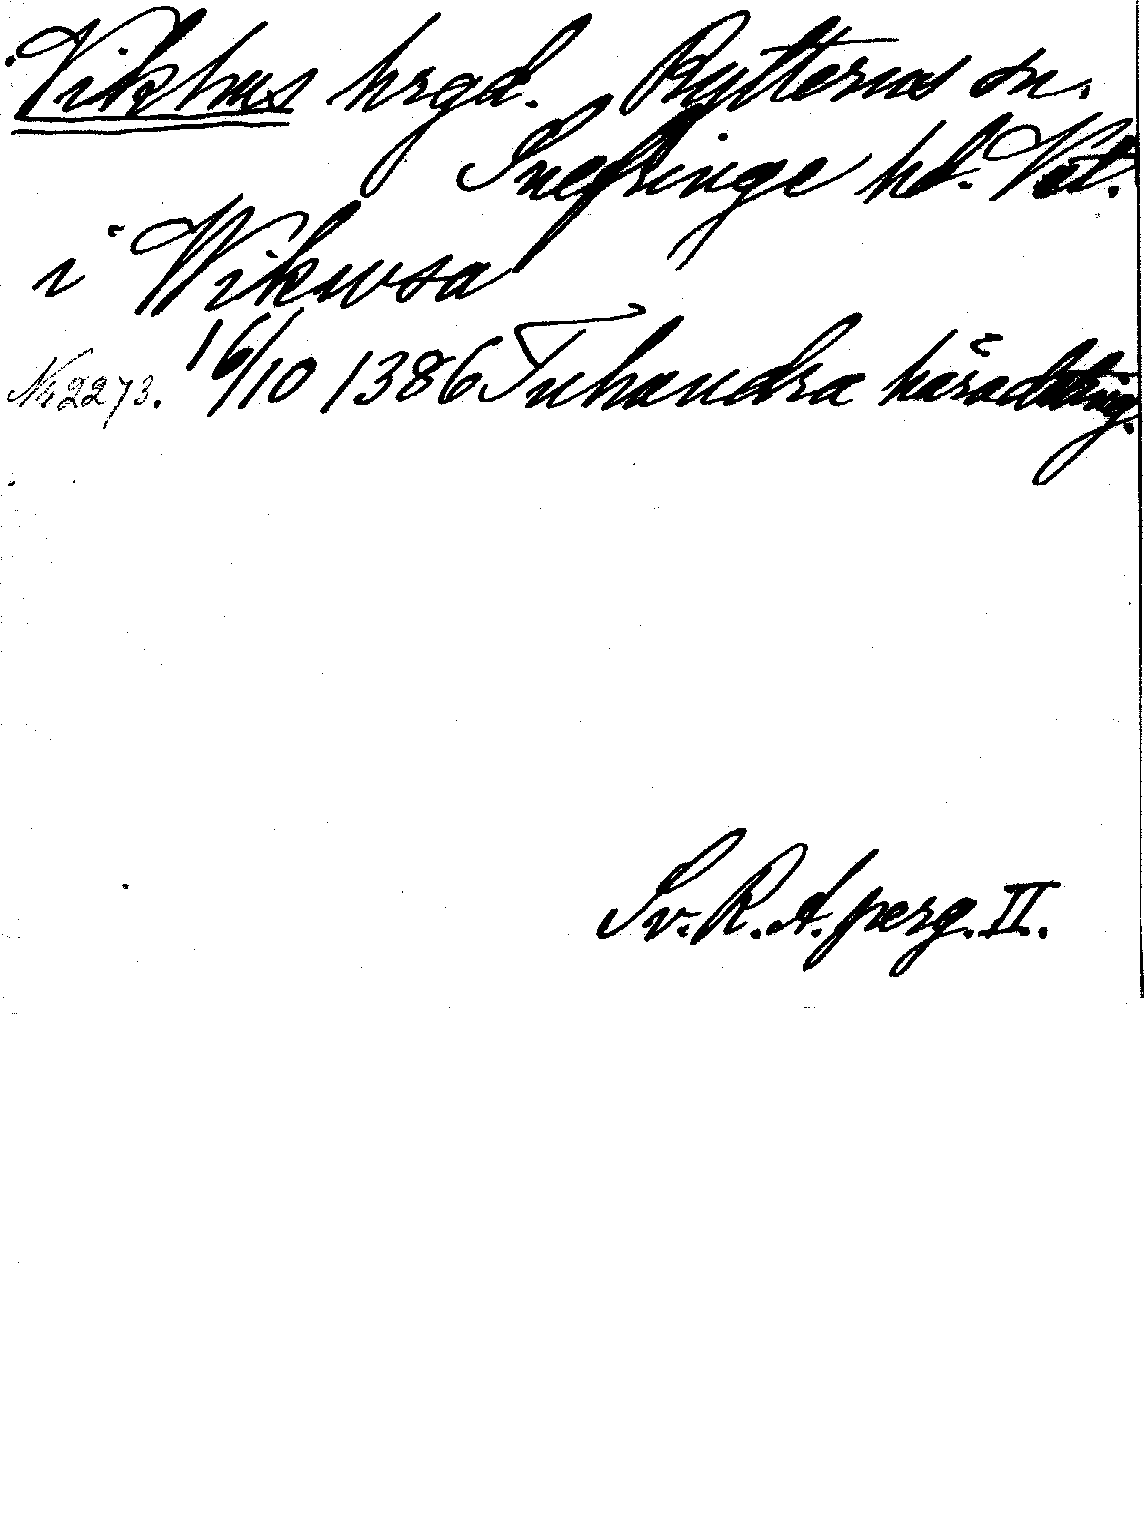 Vikhus hrgd. Rytterns sn.
Snefringe hd. Vstm.
i Wikusa
Nr 2273. 16/10 1386 Tuhundra häradsting.
Sv. R. A. perg. II.